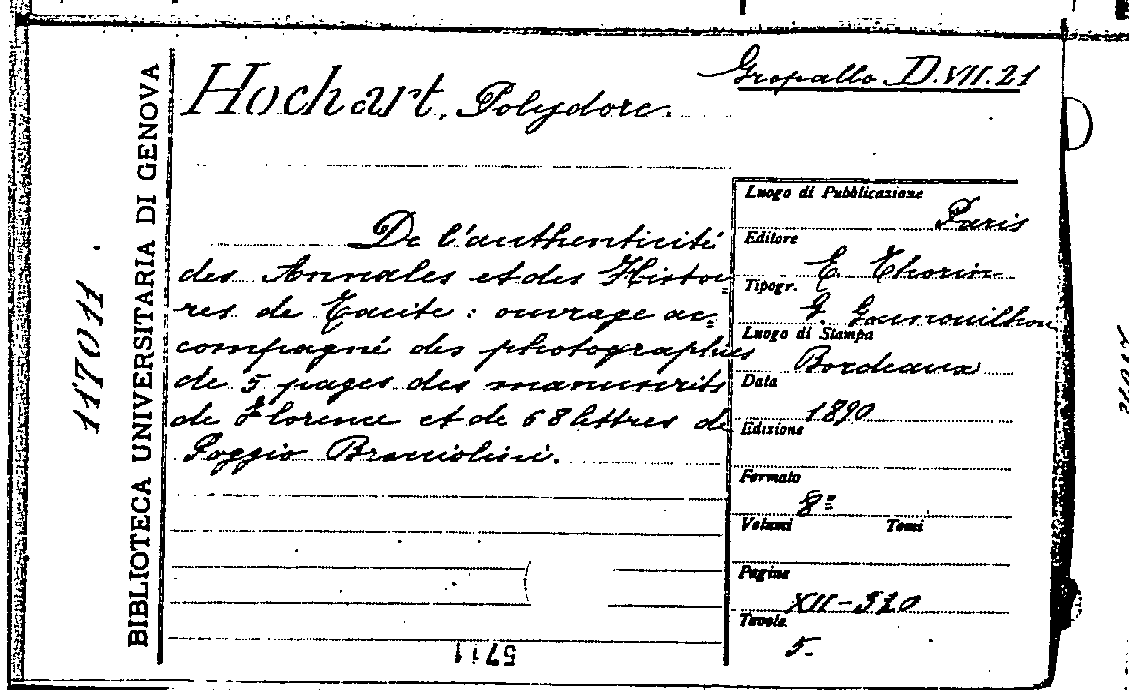 Gropallo D.VII.21
Hochart, Polydore.
De l'authenticité
des Annales et des Histoi=
res de Tacite : ouvrage ac=
compagné des photographies
de 5 pages des manuscrits
de Florence et de 68 lettres de
Poggio Bracciolini.
Luogo di Pubblicazione
Paris
Editore
E. Thorin
Tipogr.
G. Gounouilhou
Luogo di Stampa
Bordeaux
Data
1890
Edizione
Formato
8º
Volumi Tomi
Pagine
XII-320
Tavole
5.
BIBLIOTECA UNIVERSITARIA DI GENOVA
117011
5711